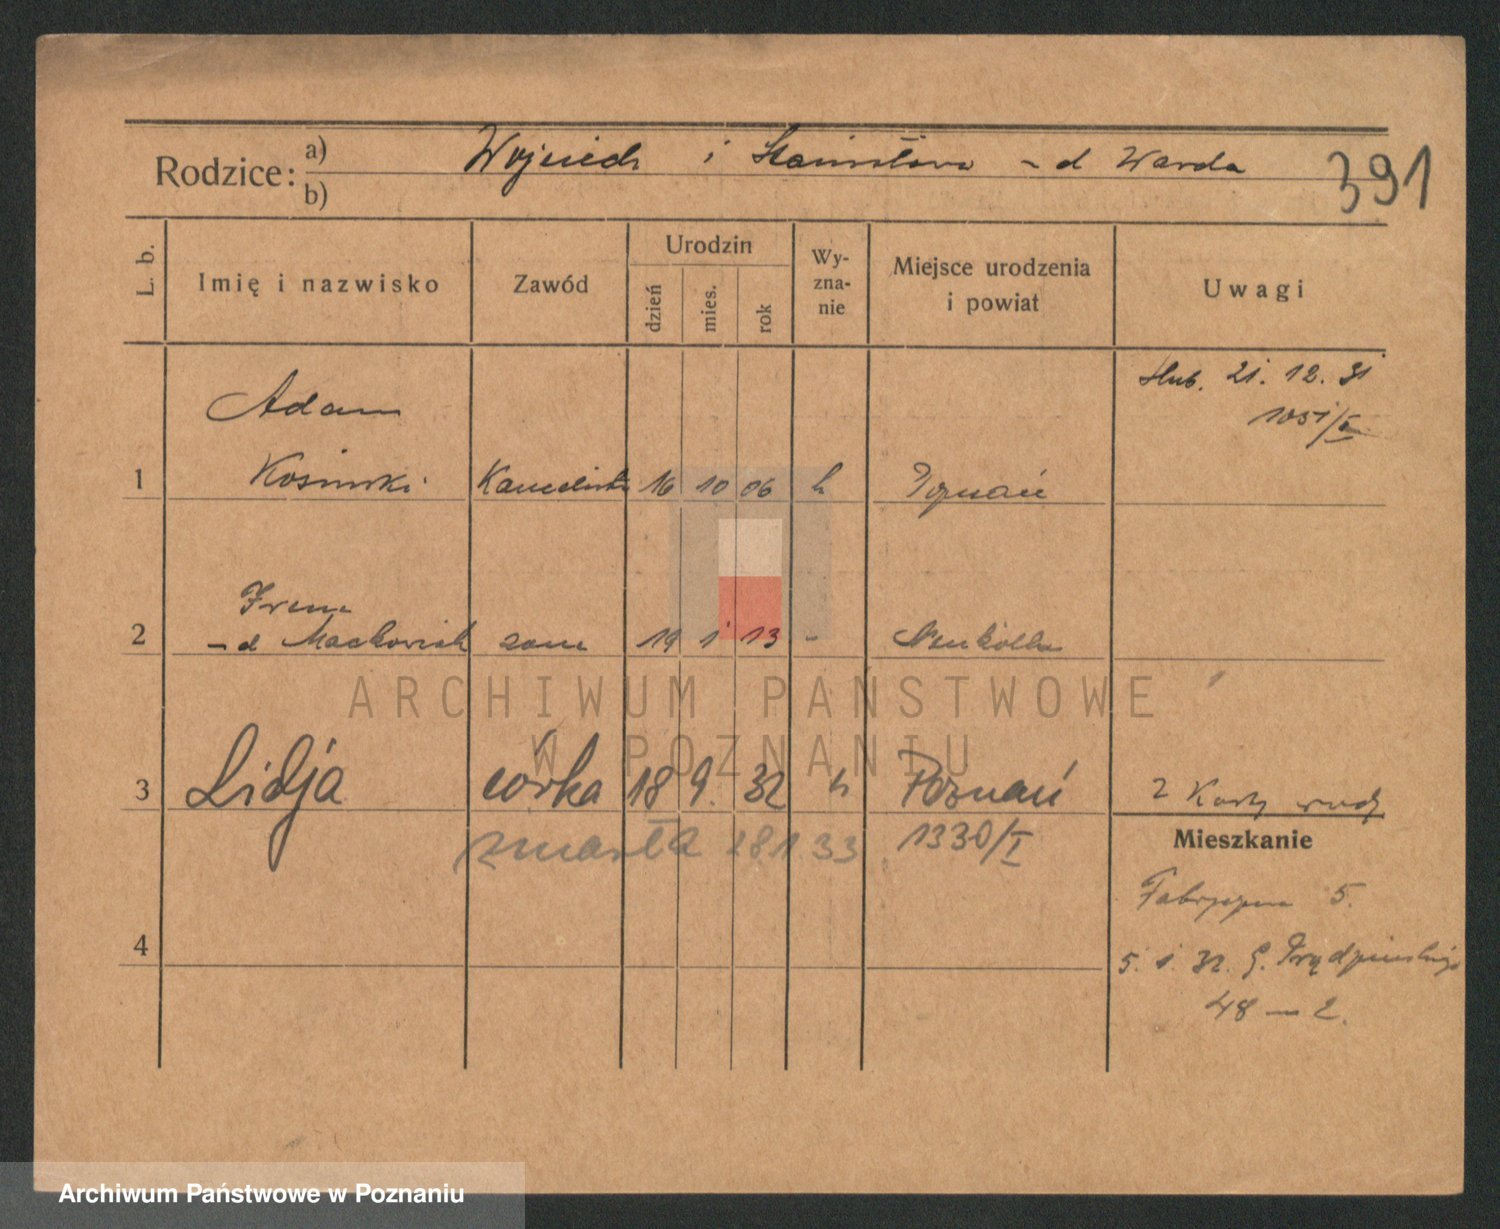 Rodzice: a) Wojciech i Stanisława - d Warda
b)
391
L. b.
Imię i nazwisko
Zawód
Urodzin
dzień
mies.
rok
Wy-
zna-
nie
Miejsce urodzenia
i powiat
Uwagi
ślub. 21. 12. 31
1051/I
Adam
1 Kosiński Kancelista 16 10 06 k Poznań
Irena
2 - d Maćkowiak żona 19 1 13 - Neukölln
ARCHIWUM PAŃSTWOWE
W POZNANIU
3 Lidja córka 18 9. 32 k Poznań
2 Karty
zmarła 28.1.33 1330/I
Mieszkanie
Fabryczna 5.
4
5. 1. 32. G. Prądzyńskiego
48 — 2.
Archiwum Państwowe w Poznaniu